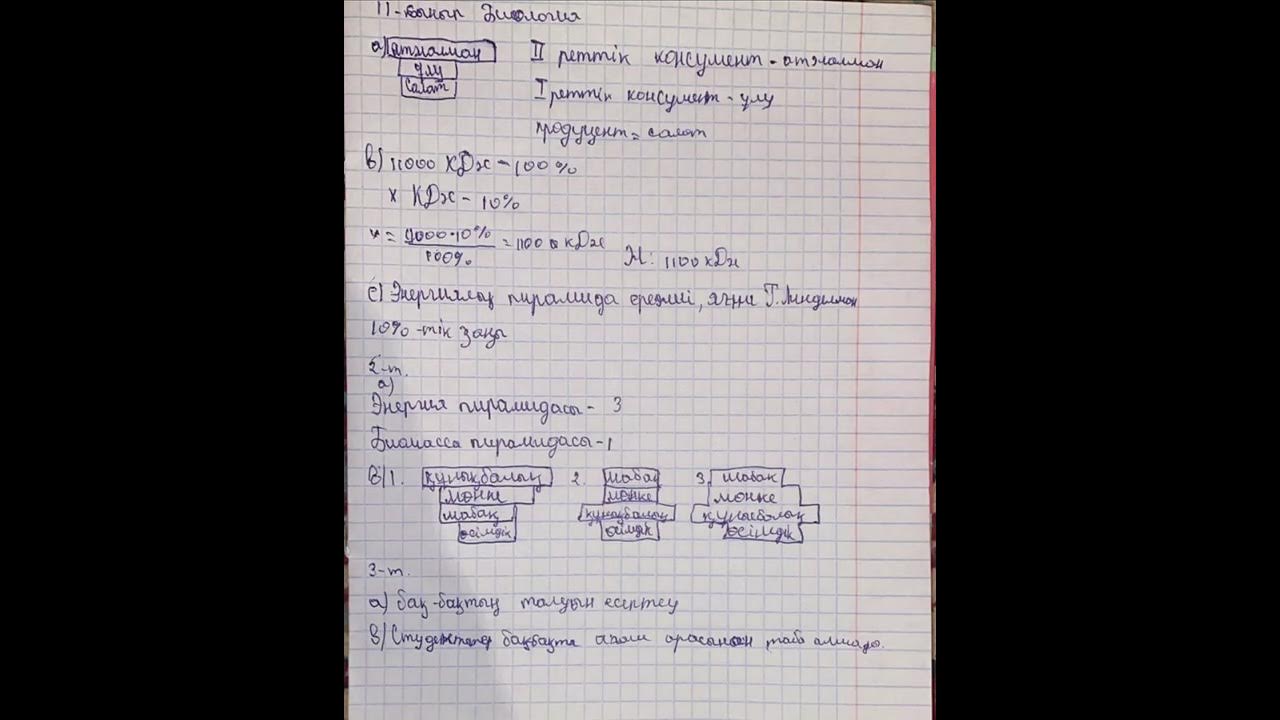 11-сынып Биология
а) атжалман
ұлу
салат
II реттік консумент - атжалман
I реттік консумент - ұлу
продуцент = салат
в) 11000 КДж - 100 %
х КДж - 10%
х = 11000·10% / 100% = 1100 кДж Ж: 1100 кДж
с) Энергияның пирамида ережесі, яғни Линдеман
10% -тік заңы
2-т.
а)
Энергия пирамидасы - 3
Биомасса пирамидасы - 1
в) 1. құнысбалық
мөңке
шабақ
өсімдік
2. шабақ
мөңке
құнысбалық
өсімдік
3. шабақ
мөңке
құнысбалық
өсімдік
3-т.
а) бақ-бақтың талуын есептеу
в) Студенттер бақбақта арасынан таба алмады.